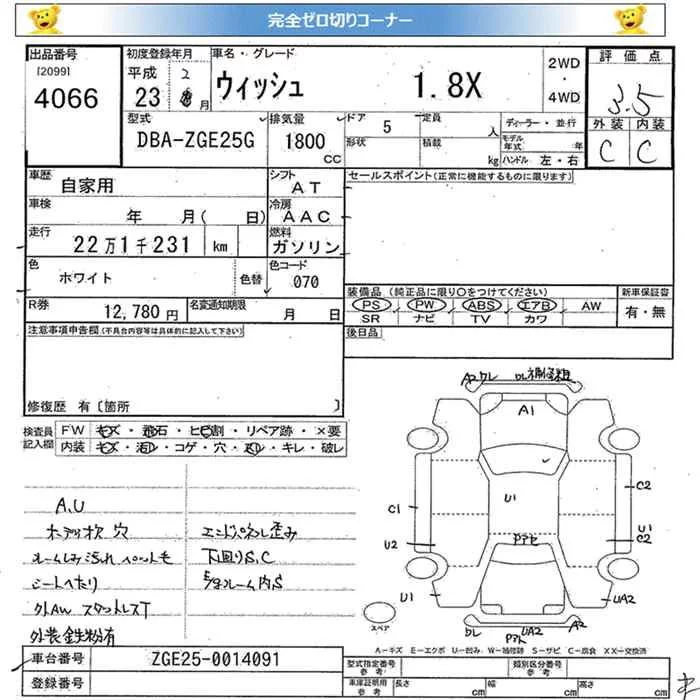 完全ゼロ切りコーナー
出品番号
[2099]
4066
初度登録年月
平成
23
2
月
車名・グレード
ウィッシュ 1.8X
2WD
・
4WD
評価点
3.5
外装 内装
C C
型式
DBA-ZGE25G
排気量
1800
CC
ドア
5
定員
人
形状
積載
kg
ディーラー・並行
モデル年式
年
ハンドル 左・右
車歴
自家用
シフト
AT
車検
年 月( 日)
冷房
AAC
走行
22万1千231 km
燃料
ガソリン
色
ホワイト
色替
色コード
070
R券
12,780円
名変通知期限
月 日
セールスポイント(正常に機能するものに限ります)
装備品 (純正品に限り○をつけてください)
PS PW ABS エアB AW
SR ナビ TV カワ
新車保証書
有・無
後日品
注意事項申告欄(不具合内容等は具体的に記入して下さい)
修復歴 有〔箇所 〕
検査員記入欄
FW キズ・飛石・ヒビ割・リペア跡・×要
内装 キズ・汚レ・コゲ・穴・スレ・キレ・破レ
A.U
ホデッ枚 穴
ルームしみ汚れ ペット毛
シートへたり
外AW スタットレスT
外装鉄粉有
エンドパネル歪み
下回りS,C
A2ワレ
A1
U1
C1
U2
U1
C2
U1
C2
UA2
UA2
A2
スペア
A－キズ E－エクボ U－凹み W－補修跡 S－サビ C－腐食 XX－交換済
車台番号
ZGE25-0014091
登録番号
型式指定番号
参考
類別区分番号
参考
車庫証明用
参考
長さ
cm
幅
cm
高さ
cm